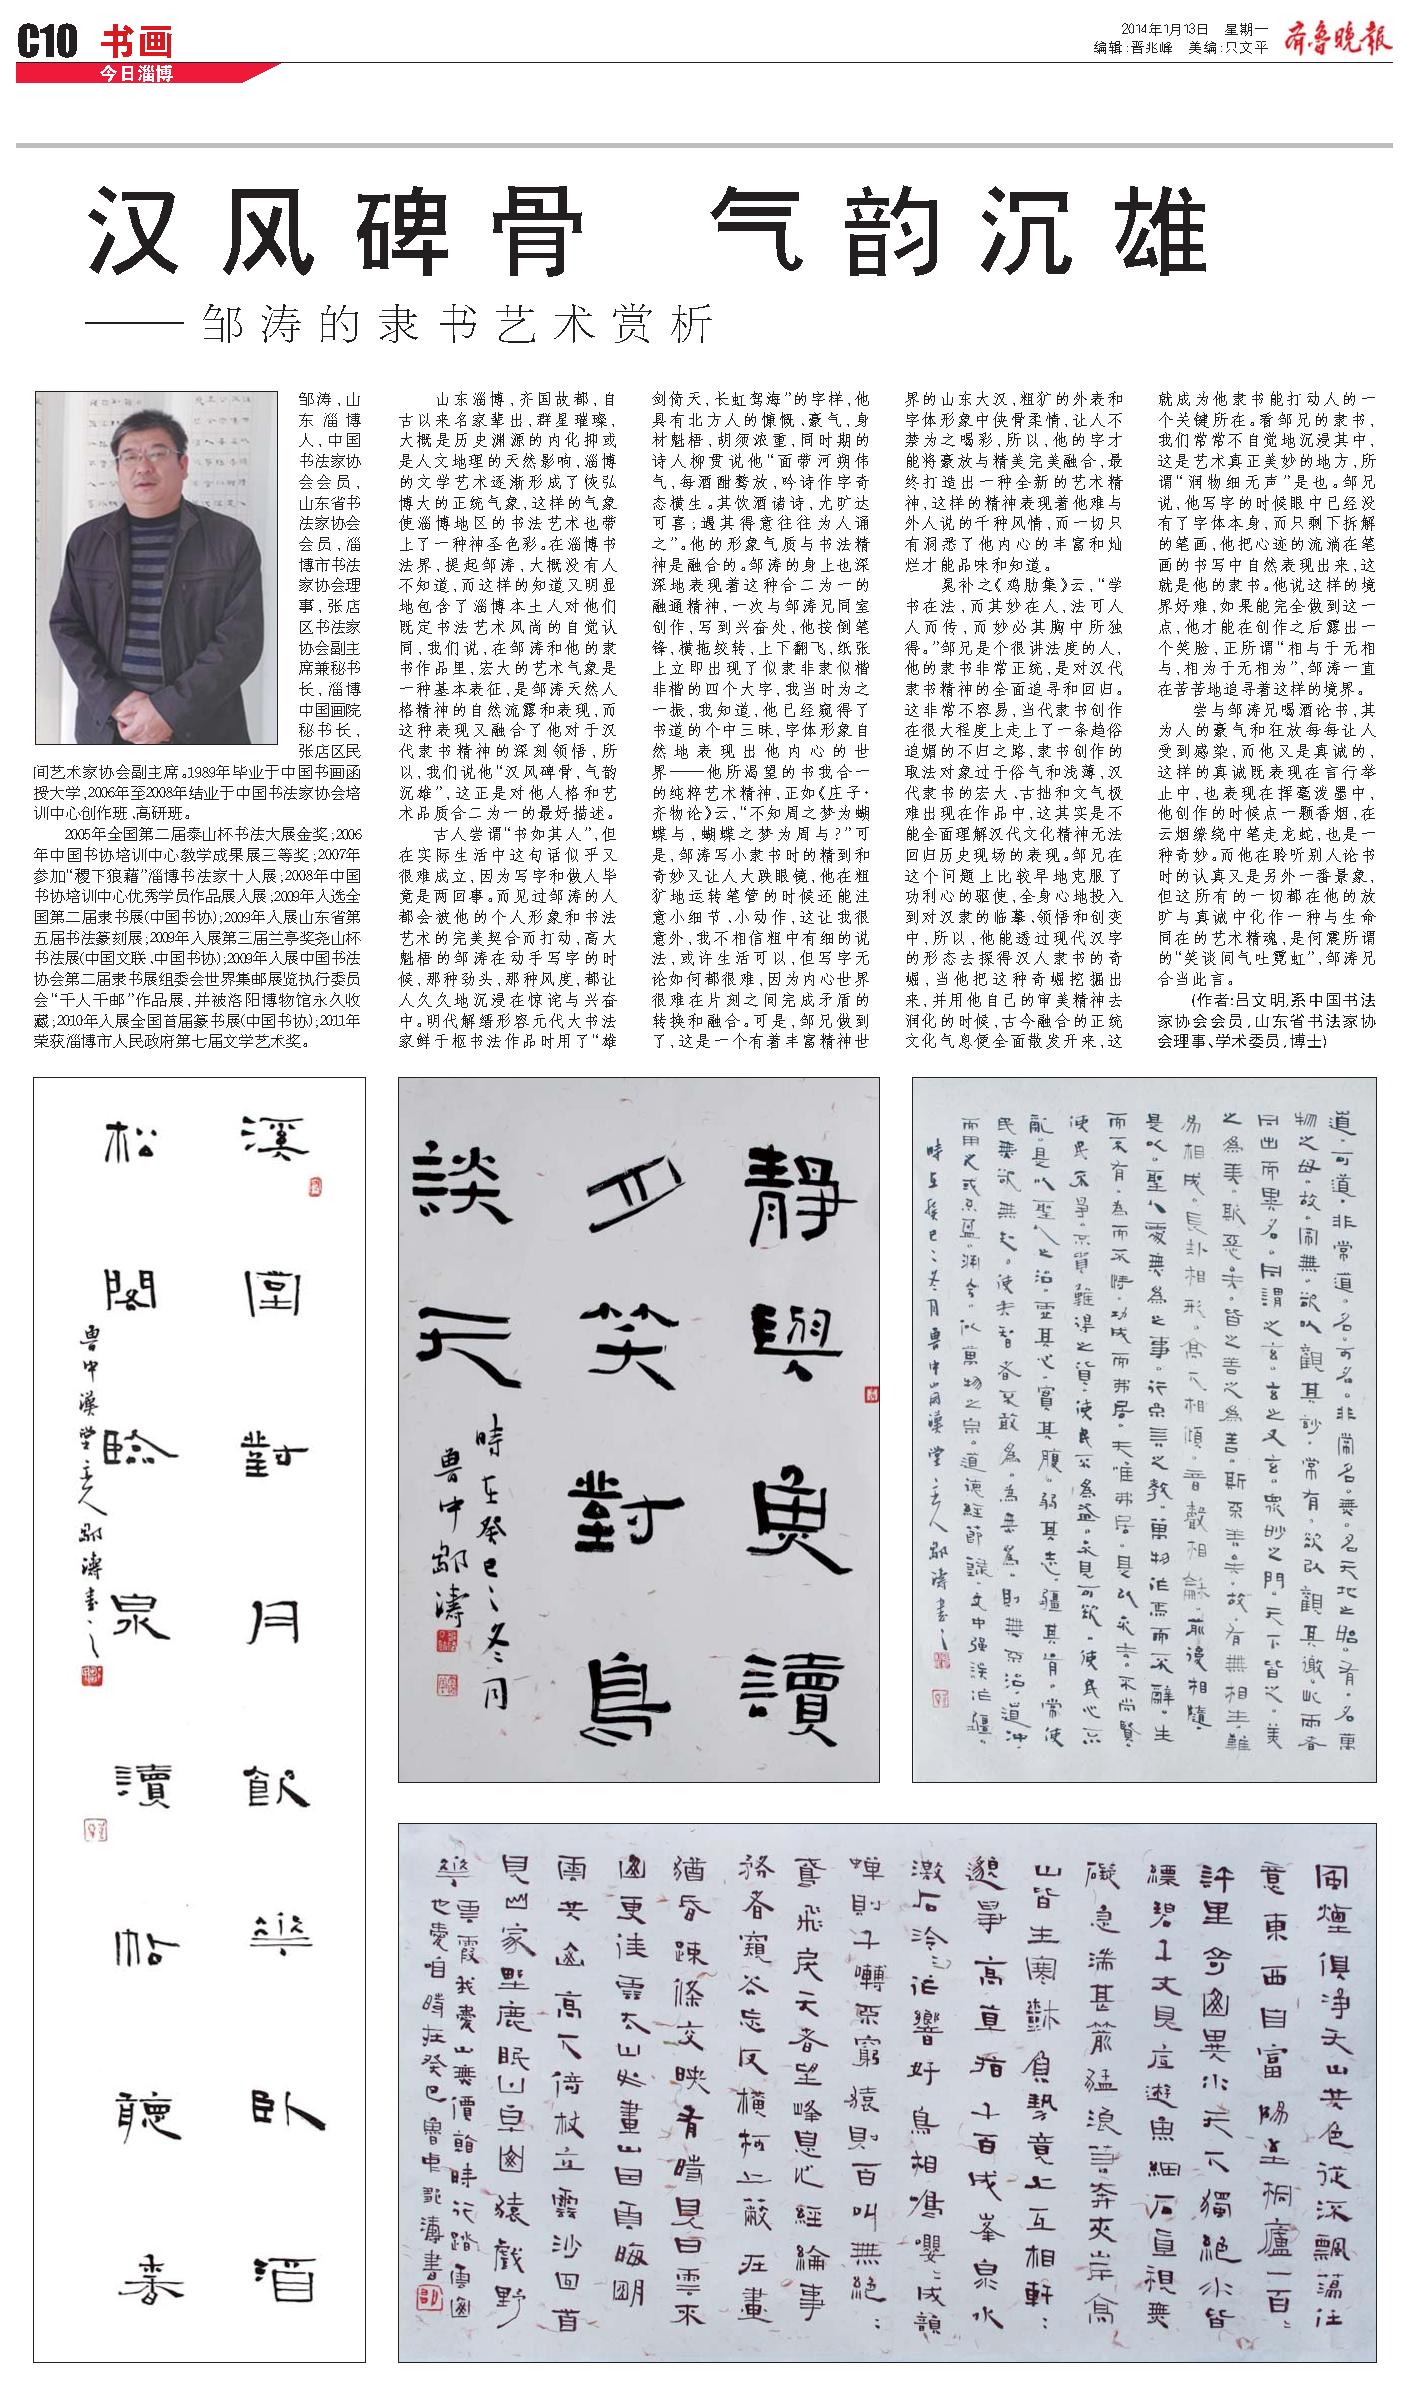 C10 书画
今日淄博
2014年1月13日 星期一
编辑:晋兆峰 美编:只文平
齐鲁晚报
汉风碑骨 气韵沉雄
——邹涛的隶书艺术赏析
邹涛,山
东淄博
人,中国
书法家协
会会员,
山东省书
法家协会
会员,淄
博市书法
家协会理
事,张店
区书法家
协会副主
席兼秘书
长,淄博
中国画院
秘书长,
张店区民
间艺术家协会副主席。1989年毕业于中国书画函
授大学,2006年至2008年结业于中国书法家协会培
训中心创作班、高研班。
2005年全国第二届泰山杯书法大展金奖;2006
年中国书协培训中心教学成果展三等奖;2007年
参加“稷下狼藉”淄博书法家十人展;2008年中国
书协培训中心优秀学员作品展入展;2009年入选全
国第二届隶书展(中国书协);2009年入展山东省第
五届书法篆刻展;2009年入展第三届兰亭奖尧山杯
书法展(中国文联、中国书协);2009年入展中国书法
协会第二届隶书展组委会世界集邮展览执行委员
会“千人千邮”作品展,并被洛阳博物馆永久收
藏;2010年入展全国首届篆书展(中国书协);2011年
荣获淄博市人民政府第七届文学艺术奖。
山东淄博,齐国故都,自
古以来名家辈出,群星璀璨,
大概是历史渊源的内化抑或
是人文地理的天然影响,淄博
的文学艺术逐渐形成了恢弘
博大的正统气象,这样的气象
使淄博地区的书法艺术也带
上了一种神圣色彩。在淄博书
法界,提起邹涛,大概没有人
不知道,而这样的知道又明显
地包含了淄博本土人对他们
既定书法艺术风尚的自觉认
同,我们说,在邹涛和他的隶
书作品里,宏大的艺术气象是
一种基本表征,是邹涛天然人
格精神的自然流露和表现,而
这种表现又融合了他对于汉
代隶书精神的深刻领悟,所
以,我们说他“汉风碑骨,气韵
沉雄”,这正是对他人格和艺
术品质合二为一的最好描述。
古人尝谓“书如其人”,但
在实际生活中这句话似乎又
很难成立,因为写字和做人毕
竟是两回事。而见过邹涛的人
都会被他的个人形象和书法
艺术的完美契合而打动,高大
魁梧的邹涛在动手写字的时
候,那种劲头,那种风度,都让
人久久地沉浸在惊诧与兴奋
中。明代解缙形容元代大书法
家鲜于枢书法作品时用了“雄
剑倚天,长虹驾海”的字样,他
具有北方人的慷慨、豪气,身
材魁梧,胡须浓重,同时期的
诗人柳贯说他“面带河朔伟
气,每酒酣骜放,吟诗作字奇
态横生。其饮酒诸诗,尤旷达
可喜;遇其得意往往为人诵
之”。他的形象气质与书法精
神是融合的。邹涛的身上也深
深地表现着这种合二为一的
融通精神,一次与邹涛兄同室
创作,写到兴奋处,他按倒笔
锋,横拖绞转,上下翻飞,纸张
上立即出现了似隶非隶似楷
非楷的四个大字,我当时为之
一振,我知道,他已经窥得了
书道的个中三昧,字体形象自
然地表现出他内心的世
界——他所渴望的书我合一
的纯粹艺术精神,正如《庄子·
齐物论》云,“不知周之梦为蝴
蝶与,蝴蝶之梦为周与?”可
是,邹涛写小隶书时的精到和
奇妙又让人大跌眼镜,他在粗
犷地运转笔管的时候还能注
意小细节、小动作,这让我很
意外,我不相信粗中有细的说
法,或许生活可以,但写字无
论如何都很难,因为内心世界
很难在片刻之间完成矛盾的
转换和融合。可是,邹兄做到
了,这是一个有着丰富精神世
界的山东大汉,粗犷的外表和
字体形象中侠骨柔情,让人不
禁为之喝彩,所以,他的字才
能将豪放与精美完美融合,最
终打造出一种全新的艺术精
神,这样的精神表现着他难与
外人说的千种风情,而一切只
有洞悉了他内心的丰富和灿
烂才能品味和知道。
晁补之《鸡肋集》云,“学
书在法,而其妙在人,法可人
人而传,而妙必其胸中所独
得。”邹兄是个很讲法度的人,
他的隶书非常正统,是对汉代
隶书精神的全面追寻和回归。
这非常不容易,当代隶书创作
在很大程度上走上了一条趋俗
追媚的不归之路,隶书创作的
取法对象过于俗气和浅薄,汉
代隶书的宏大、古拙和文气极
难出现在作品中,这其实是不
能全面理解汉代文化精神无法
回归历史现场的表现。邹兄在
这个问题上比较早地克服了
功利心的驱使,全身心地投入
到对汉隶的临摹、领悟和创变
中,所以,他能透过现代汉字
的形态去探得汉人隶书的奇
崛,当他把这种奇崛挖掘出
来,并用他自己的审美精神去
润化的时候,古今融合的正统
文化气息便全面散发开来,这
就成为他隶书能打动人的一
个关键所在。看邹兄的隶书,
我们常常不自觉地沉浸其中,
这是艺术真正美妙的地方,所
谓“润物细无声”是也。邹兄
说,他写字的时候眼中已经没
有了字体本身,而只剩下拆解
的笔画,他把心迹的流淌在笔
画的书写中自然表现出来,这
就是他的隶书。他说这样的境
界好难,如果能完全做到这一
点,他才能在创作之后露出一
个笑脸,正所谓“相与于无相
与,相为于无相为”,邹涛一直
在苦苦地追寻着这样的境界。
尝与邹涛兄喝酒论书,其
为人的豪气和狂放每每让人
受到感染,而他又是真诚的,
这样的真诚既表现在言行举
止中,也表现在挥毫泼墨中,
他创作的时候点一颗香烟,在
云烟缭绕中笔走龙蛇,也是一
种奇妙。而他在聆听别人论书
时的认真又是另外一番景象,
但这所有的一切都在他的放
旷与真诚中化作一种与生命
同在的艺术精魂,是何震所谓
的“笑谈间气吐霓虹”,邹涛兄
合当此言。
(作者:吕文明,系中国书法
家协会会员,山东省书法家协
会理事、学术委员,博士)
溪堂對月飲華卧酒
松閣臨泉讀帖聽香
魯中漢堂主人鄒濤書之
靜與魚讀
月笑對鳥
談天
時在癸巳之冬月
魯中鄒濤
道可道非常道名可名非常名無名天地之始有名萬
物之母故常無欲以觀其妙常有欲以觀其徼此兩者
同出而異名同謂之玄玄之又玄眾妙之門天下皆知美
之為美斯惡矣皆知善之為善斯不善矣故有無相生難
易相成長短相形高下相傾音聲相和前後相隨
是以聖人處無為之事行不言之教萬物作焉而不辭生
而不有為而不恃功成而弗居夫唯弗居是以不去不尚賢
使民不爭不貴難得之貨使民不為盜不見可欲使民心不
亂是以聖人之治虛其心實其腹弱其志彊其骨常使
民無知無欲使夫智者不敢為為無為則無不治道沖
而用之或不盈淵兮似萬物之宗道德經節錄文中强誤作彊
時在癸巳之冬月魯中山南漢堂主人鄒濤書之
風煙俱淨天山共色從流飄蕩任
意東西自富陽至桐廬一百
許里奇山異水天下獨絕水皆
縹碧千丈見底遊魚細石直視無
礙急湍甚箭猛浪若奔夾岸高
山皆生寒樹負勢競上互相軒
邈爭高直指千百成峯泉水
激石泠泠作響好鳥相鳴嚶嚶成韻
蟬則千囀不窮猿則百叫無絕
鳶飛戾天者望峰息心經綸事
務者窺谷忘反橫柯上蔽在晝
猶昏疎條交映有時見日雲來
山更佳雲去山如畫山因雨晦明
雲共山高下倚杖立雲沙回首
見山家野鹿眠山草山猿戲野
華雲霞我愛山無價看時行踏雲山
也愛咱時在癸巳魯中鄒濤書